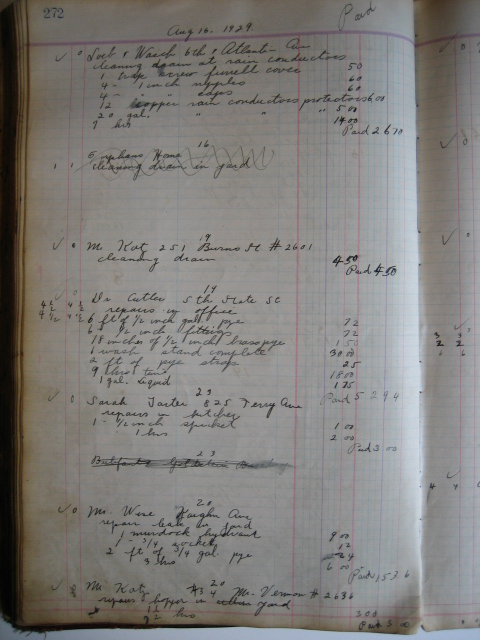 272
Aug 16. 1929.
Paid
& Wasch 6th & Atlantic Ave
cleaning drain at rain conductors
1 trap screw ferrell cover 50
4 - 1 inch nipples 60
4 - " caps 60
12 copper rain conductors protectors 6.00
20 gal. " " " 5 00
9 hrs 14 00
Paid 26 70
16
Orphans Home
cleaning drain in yard
19
Mr Katz 251 Burns St # 2601
cleaning drain 4 50
Paid 4 50
19
Dr. Cutler 5th State St
repairs in office
6 ft of 1/2 inch gal. pipe 72
6 1/2 inch fittings 72
18 inches of 1/2 inch brass pipe 1 50
1 wash stand complete 30 00
2 ft of pipe strap 25
9 hrs time 18 00
1 gal. liquid 1 75
Paid 52 94
23
Sarah 825 Ferry Ave
repairs in kitchen
1 - 1/2 inch spicket 1 00
1 hrs 2 00
Paid 3 00
23
20
Mr. Wise Kaighn Ave
repair leak in yard
1 murdock hydrant 9 00
1 - 3/4 socket 12
2 ft of 3/4 gal. pipe 24
3 hrs 6 00
Paid 15 36
20
Mr Katz #34 Mt. Vernon # 2636
repairs hopper in yard
1 1/2 hrs 3 00
Paid 3 00